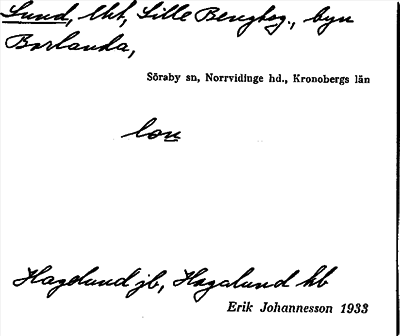 Lund, lht, Lille Bengtsg., byn
Borlanda,
Söraby sn, Norrvidinge hd., Kronobergs län
lon
Hagelund jb, Hagalund kb
Erik Johannesson 1933